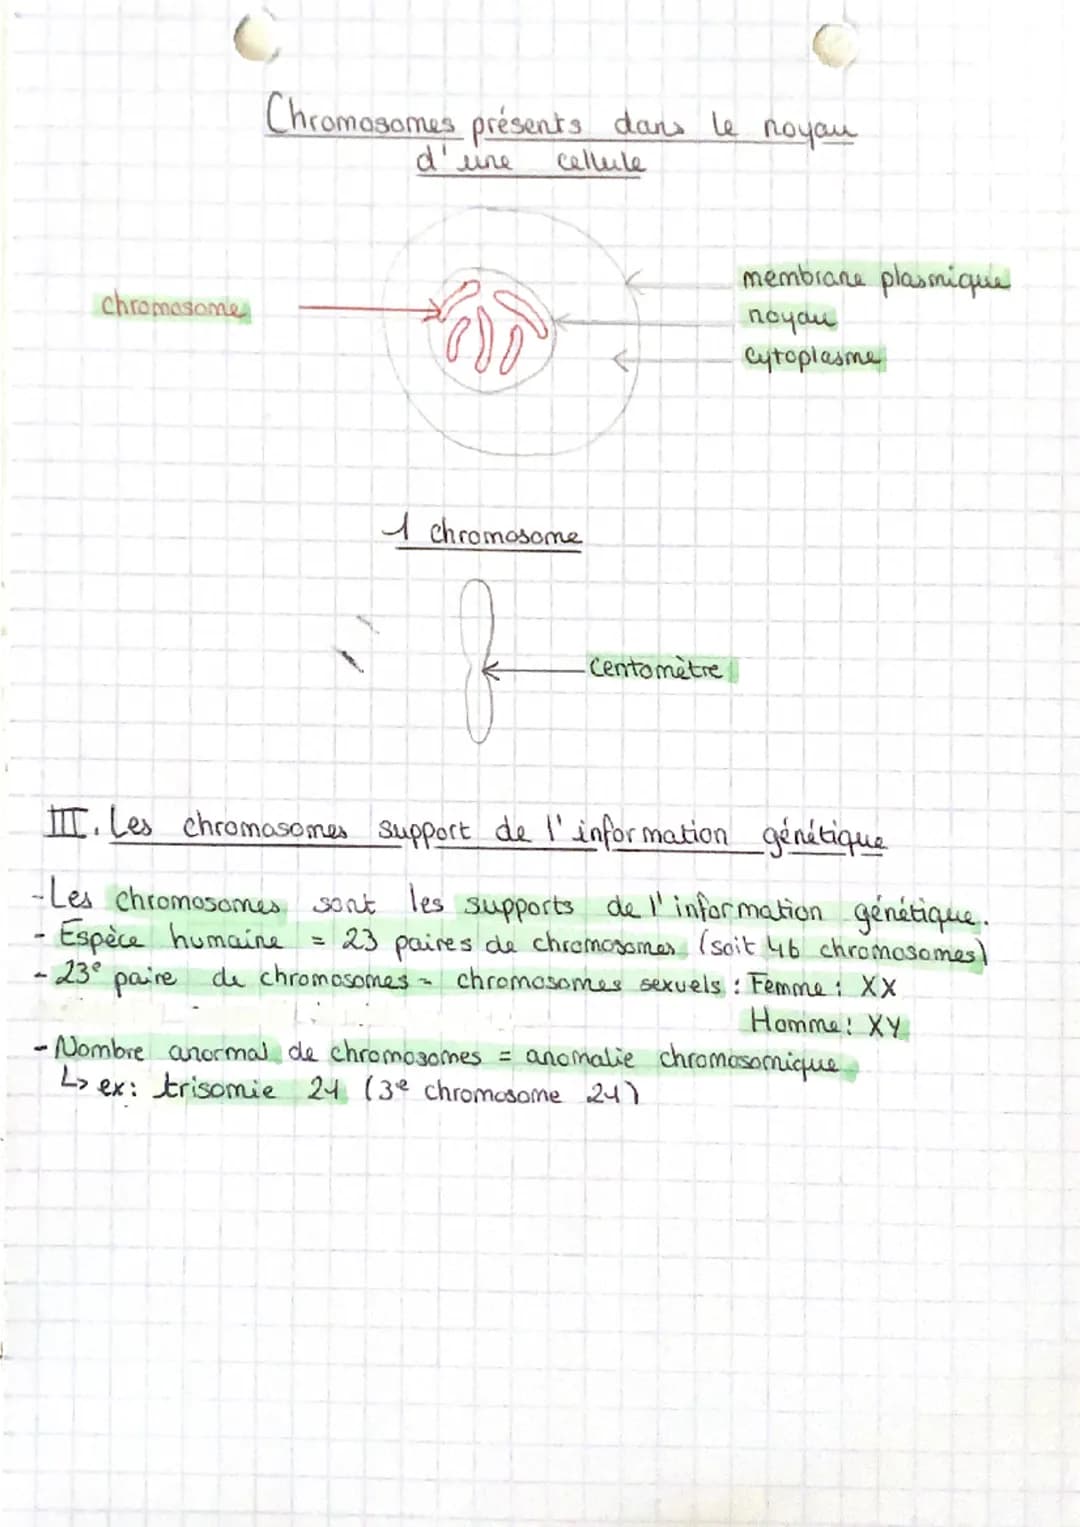 Chromosomes présents dans le noyau
d'une cellule
membrane plasmique
chromosome
noyau
cytoplasme
1 chromosome
Centomètre
III. Les chromosomes support de l'information génétique
- Les chromosomes sont les supports de l'information génétique.
- Espèce humaine = 23 paires de chromosomes (soit 46 chromosomes)
- 23e paire de chromosomes = chromosomes sexuels : Femme : XX
Homme : XY
- Nombre anormal de chromosomes = anomalie chromosomique
↳ ex : trisomie 21 (3e chromosome 21)